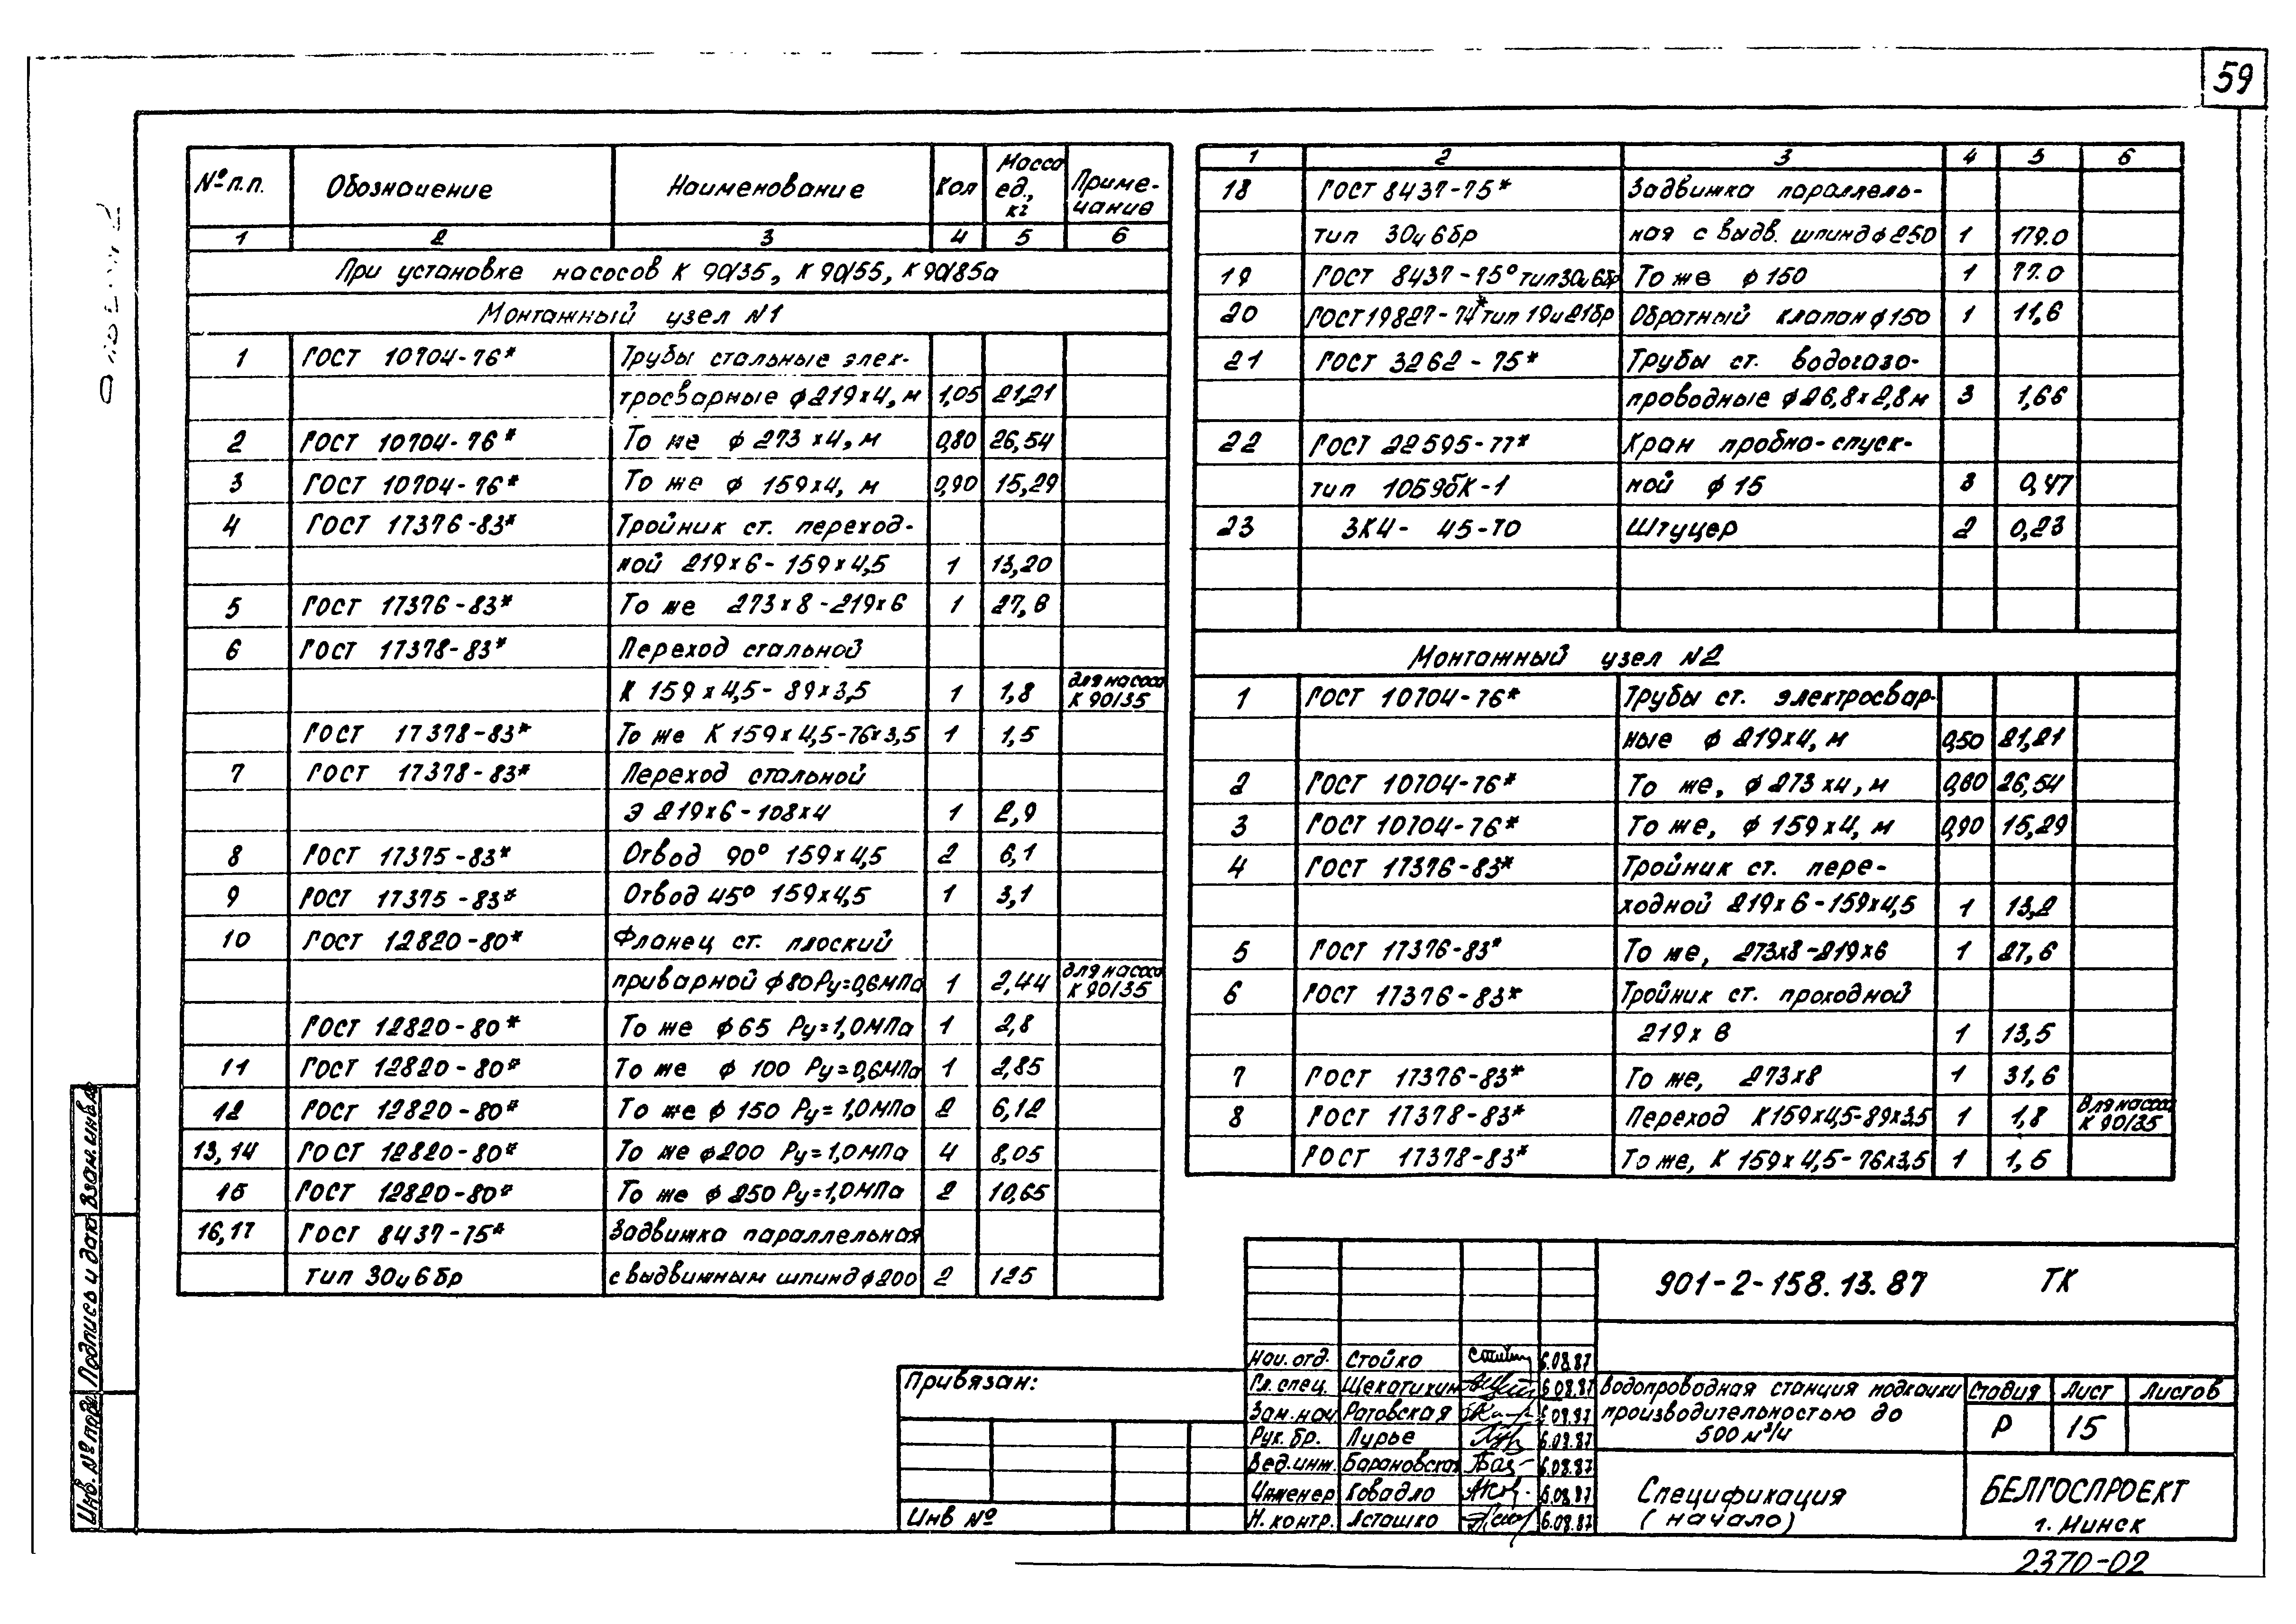 59
№ п.п. Обозначение Наименование Кол Масса ед., кг Примечание
1 2 3 4 5 6
При установке насосов К 90/35, К 90/55, К 90/85а
Монтажный узел N1
1 ГОСТ 10704-76* Трубы стальные элек-
тросварные ф219х4, м 1,05 21,21
2 ГОСТ 10704-76* То же ф 273х4, м 0,80 26,54
3 ГОСТ 10704-76* То же ф 159х4, м 0,90 15,29
4 ГОСТ 17376-83* Тройник ст. переход-
ной 219х6-159х4,5 1 13,20
5 ГОСТ 17376-83* То же 273х8-219х6 1 27,6
6 ГОСТ 17378-83* Переход стальной
К 159х4,5-89х3,5 1 1,8 для насоса К 90/35
ГОСТ 17378-83* То же К 159х4,5-76х3,5 1 1,5
7 ГОСТ 17378-83* Переход стальной
Э 219х6-108х4 1 2,9
8 ГОСТ 17375-83* Отвод 90° 159х4,5 2 6,1
9 ГОСТ 17375-83* Отвод 45° 159х4,5 1 3,1
10 ГОСТ 12820-80* Фланец ст. плоский
приварной ф80 Ру=0,6МПа 1 2,44 для насоса К 90/35
ГОСТ 12820-80* То же ф65 Ру=1,0МПа 1 2,8
11 ГОСТ 12820-80* То же ф 100 Ру=0,6МПа 1 2,85
12 ГОСТ 12820-80* То же ф 150 Ру=1,0МПа 2 6,12
13,14 ГОСТ 12820-80* То же ф200 Ру=1,0МПа 4 8,05
15 ГОСТ 12820-80* То же ф 250 Ру=1,0МПа 2 10,65
16,17 ГОСТ 8437-75* Задвижка параллельная
тип 30ч6бр с выдвижным шпинд ф200 2 125
1 2 3 4 5 6
18 ГОСТ 8437-75* Задвижка параллель-
тип 30ч6бр ная с выдв. шпинд ф 250 1 179.0
19 ГОСТ 8437-75° тип 30ч6бр То же ф 150 1 77.0
20 ГОСТ 19827-74* тип 19ч21бр Обратный клапан ф150 1 11,6
21 ГОСТ 3262-75* Трубы ст. водогазо-
проводные ф26,8х2,8 м 3 1,66
22 ГОСТ 22595-77* Кран пробно-спуск-
тип 10Б9бК-1 ной ф 15 3 0,47
23 ЗК4- 45-70 Штуцер 2 0,23
Монтажный узел N2
1 ГОСТ 10704-76* Трубы ст. электросвар-
ные ф 219х4, м 0,50 21,21
2 ГОСТ 10704-76* То же, ф 273х4, м 0,60 26,54
3 ГОСТ 10704-76* То же, ф 159х4, м 0,90 15,29
4 ГОСТ 17376-83* Тройник ст. пере-
ходной 219х6-159х4,5 1 13,2
5 ГОСТ 17376-83* То же, 273х8-219х6 1 27,6
6 ГОСТ 17376-83* Тройник ст. проходной
219х 6 1 13,5
7 ГОСТ 17376-83* То же, 273х8 1 31,6
8 ГОСТ 17378-83* Переход К159х4,5-89х3.5 1 1,8 Для насоса К 90/35
ГОСТ 17378-83* То же, К 159х4,5-76х3,5 1 1,5
Взам.инв.№
Подпись и дата
Инв. № подл.
Привязан:
Инв №
901-2-158.13.87 ТК
Нач. отд. Стойко 6.08.87
Гл. спец. Щекатихин 6.08.87
Зам. нач Ратовская 6.08.87
Рук. бр. Лурье 6.08.87
Вед.инж. Барановская 6.08.87
Инженер Ковадло 6.08.87
Н. контр. Асташко 6.08.87
Водопроводная станция подкачки
производительностью до
500 м³/ч
Стадия Лист Листов
Р 15
Спецификация
(начало)
БЕЛГОСПРОЕКТ
г. Минск
2370-02